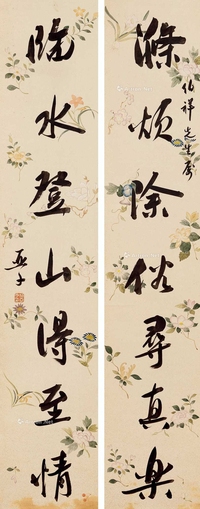 滌煩除俗尋真樂
伯祥先生屬
臨水登山得至情
亞子